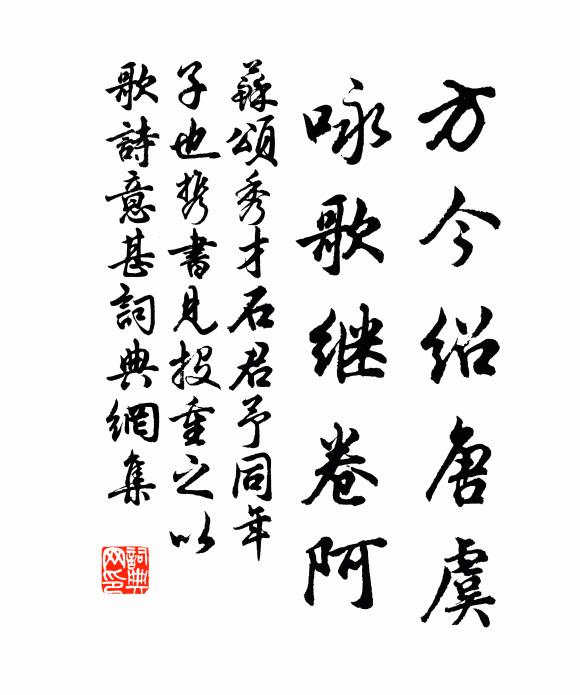 方今绍唐虞
咏歌继卷阿
蘇頌秀才石君予同年
子也携書見投重之以
歌詩意甚詞典網集
詞典网印